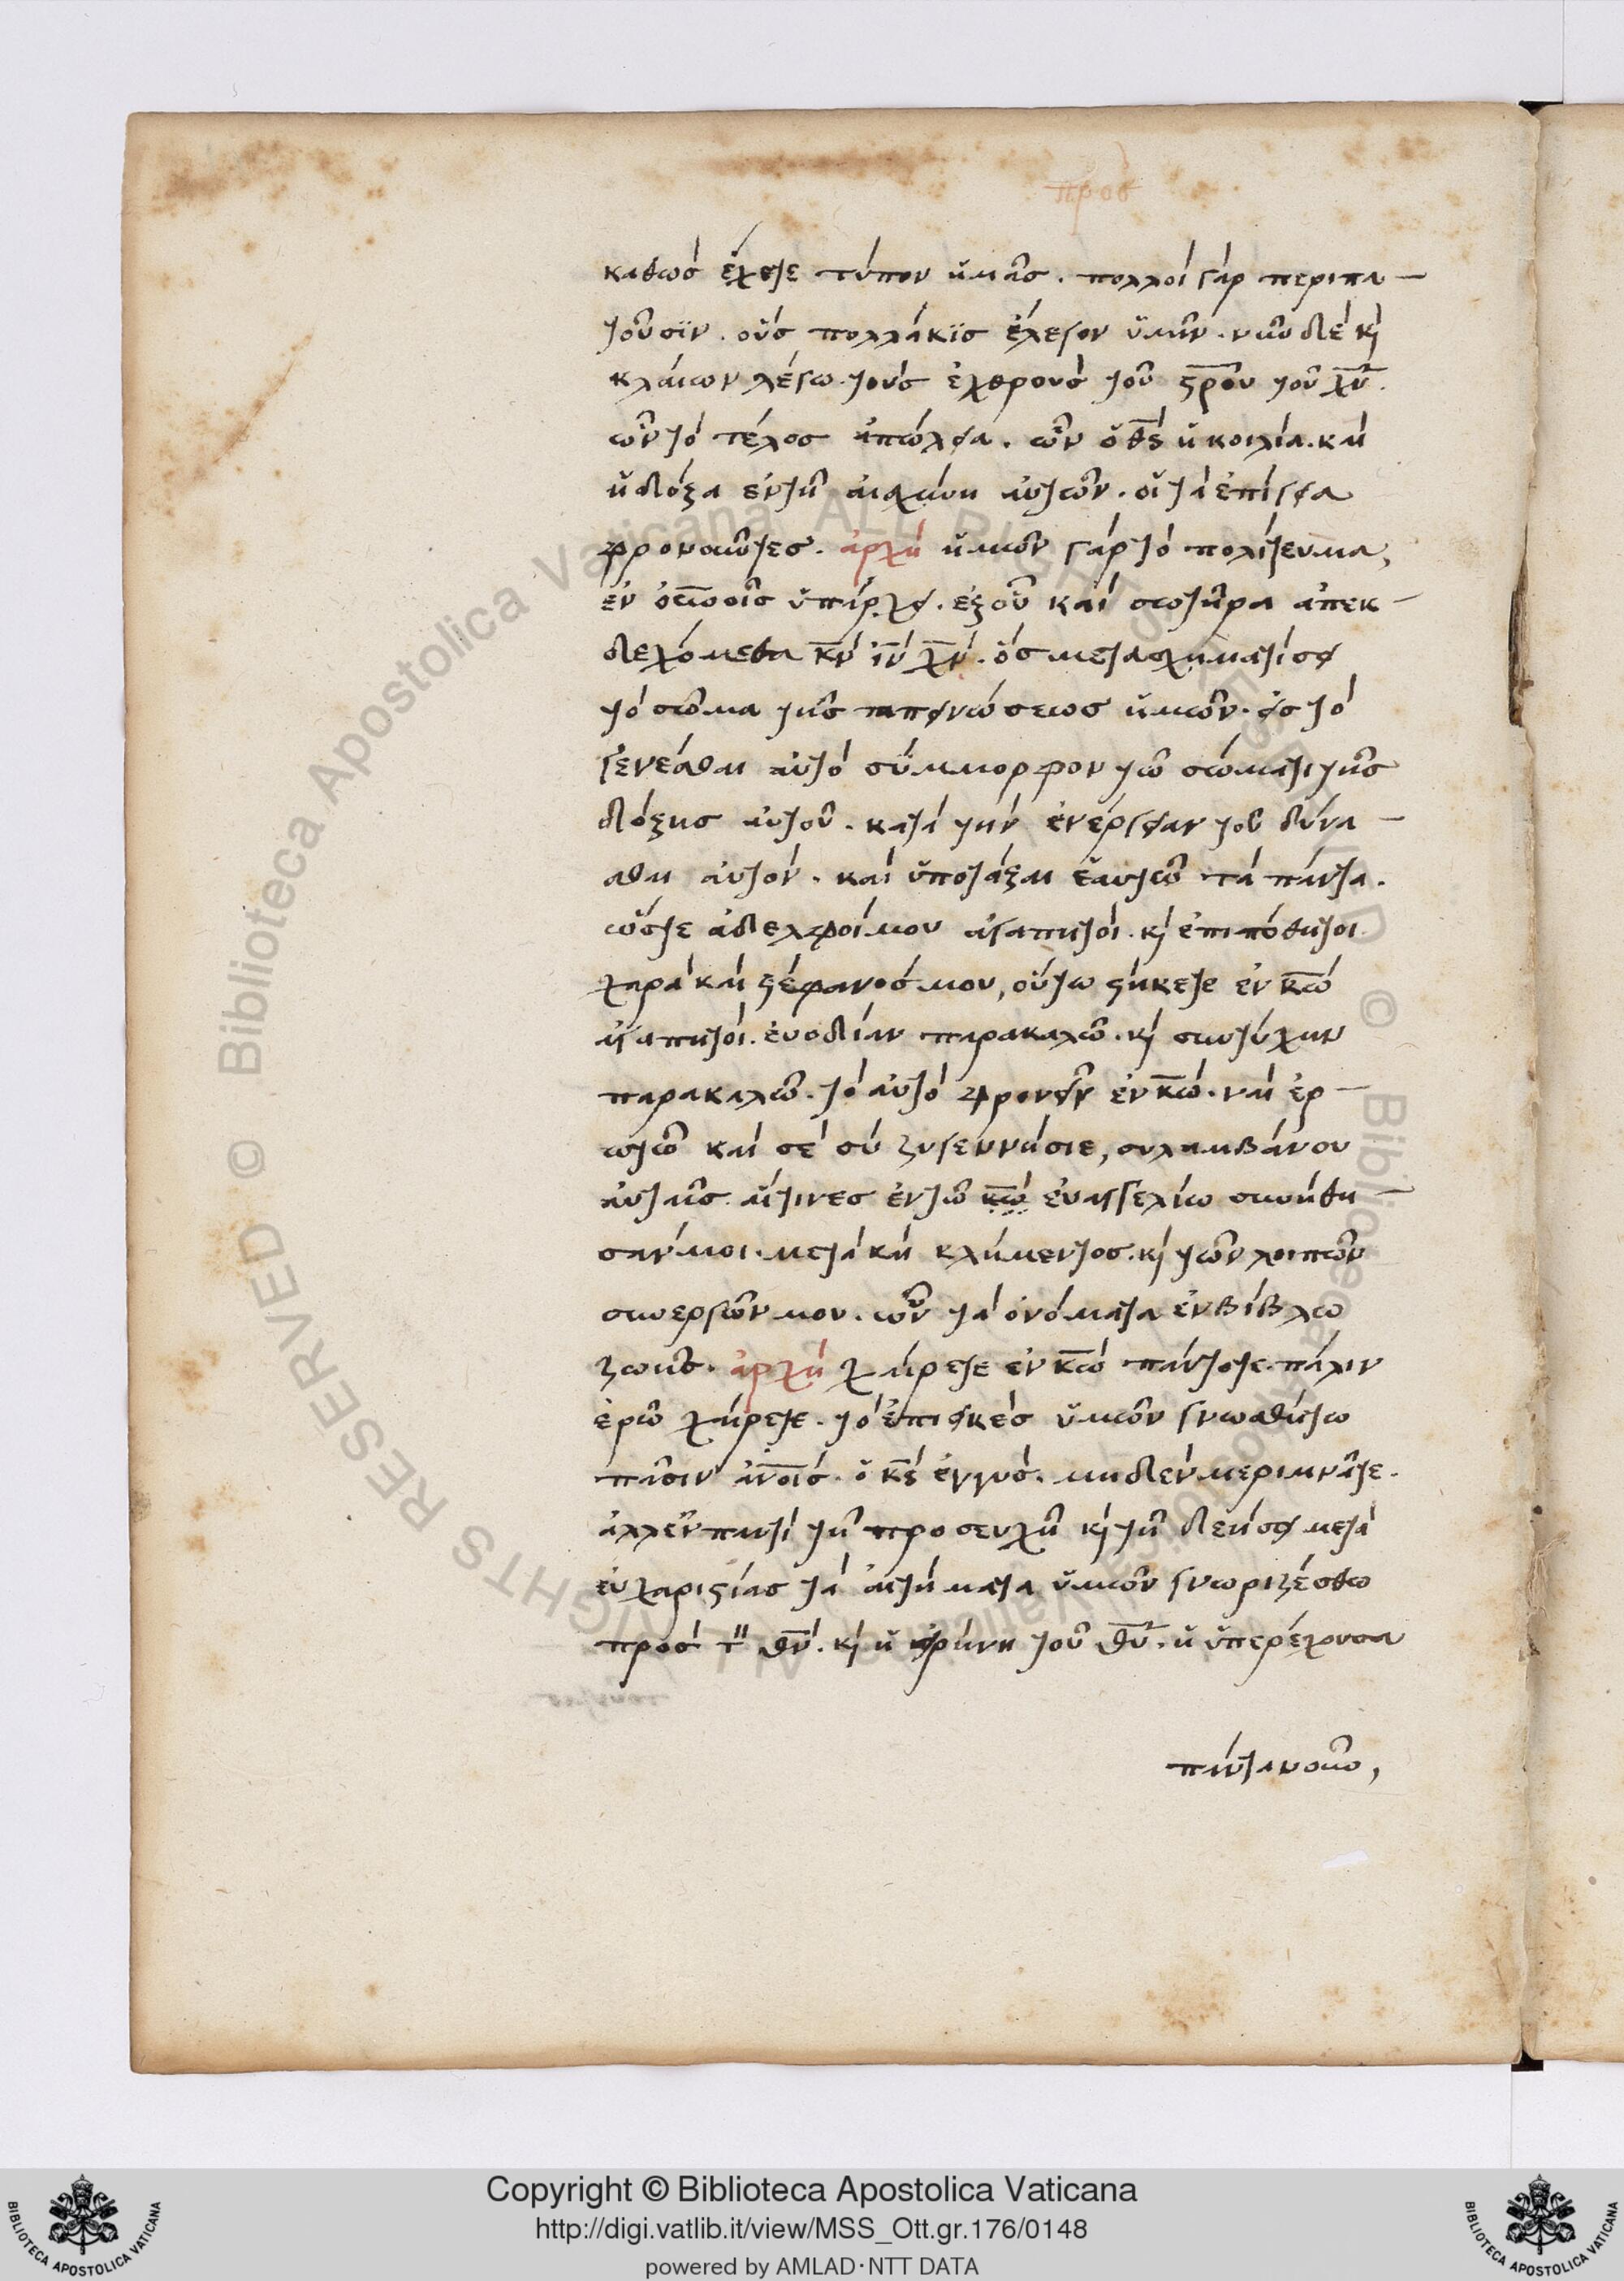 προσ
καθὼσ ἔχετε τύπον ἡμᾶσ. πολλοὶ γὰρ περιπα-
τοῦσϊν. οὓσ πολλάκϊσ ἔλεγον ὑμῖν. νῦν δὲ κὶ
κλαίων λέγω. τοὺσ ἐχθροὺσ τοῦ σ̅ρ̅ου τοῦ χ̅υ̅.
ὧν τὸ τέλοσ ἀπώλεια. ὧν ὁ θ̅σ̅ ἡ κοιλία. καὶ
ἡ δόξα ἐν τῆ αἰσχύνη αὐτῶν. οἱ τὰ ἐπίγεια
φρονοῦντεσ. ἀρχὴ ἡμῶν γὰρ τὸ πολίτευμα,
ἐν ο̅υ̅νοῖσ ὑπάρχει. ἐξοῦ καὶ σωτῆρα ἀπεκ-
δεχόμεθα κ̅ν̅ ι̅ν̅ χ̅ν̅. ὃσ μετασχηματίσει
τὸ σῶμα τῆσ ταπεινώσεωσ ἡμῶν. εἰσ τὸ
γενέσθαι αὐτὸ σύμμορφον τῶ σώματι τῆσ
δόξησ αὐτοῦ. κατὰ τὴν ἐνέργειαν τοῦ δύνα-
σθαι αὐτὸν. καὶ ὑποτάξαι ἑαυτῶ τὰ πάντα.
ὥστε ἀδελφοί μου ἀγαπητοὶ. κὶ ἐπιπόθητοι.
χαρὰ καὶ στέφανόσ μου, οὕτω στήκετε ἐν κ̅ω̅
ἀγαπητοὶ. ἐυοδίαν παρακαλῶ. κὶ συντύχην
παρακαλῶ. τὸ αὐτὸ φρονεῖν ἐν κ̅ω̅. ναὶ ἐρ-
ωτῶ καὶ σὲ σύ ζυγεννήσιε, συλαμβάνου
αὐταῖσ. αἵτινεσ ἐν τῶ κ̅ω̅ ἐυαγγελίω συνήθη-
σάν μοι. μετὰ καὶ κλήμεντοσ. κὶ τῶν λοιπῶν
συνεργῶν μου. ὧν τὰ ὀνόματα ἐν βίβλω
ζωῆσ. ἀρχὴ χαίρετε ἐν κ̅ω̅ πάντοτε. πάλιν
ἐρῶ χαίρετε. τὸ ἐπιεικὲσ ὑμῶν γνωσθήτω
πᾶσιν α̅ν̅οισ. ὁ κ̅σ̅ ἐγγυσ. μηδὲν μεριμνᾶτε.
ἀλλ ἐν παντὶ τῆ προσευχῆ κὶ τῆ δεήσει μετὰ
ἐυχαριστίασ τὰ αἰτήματα ὑμῶν γνωριζέσθω
πρὸσ τ῍ θ̅ν̅. κὶ ἡ εἰρήνη τοῦ θ̅υ̅. ἡ ὑπερέχουσα
πάντα νοῦν,